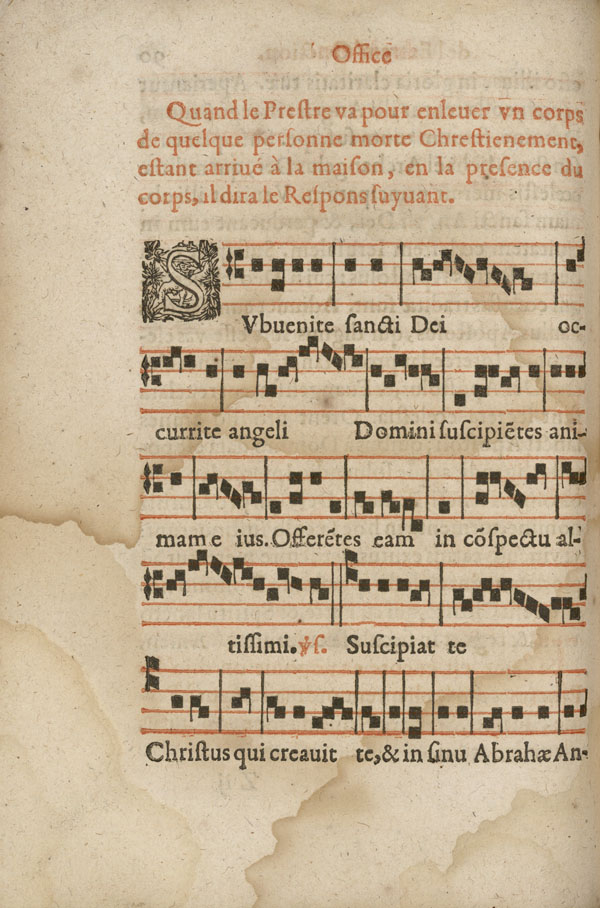 Office
Quand le Prestre va pour enleuer vn corps
de quelque personne morte Chrestienement,
estant arriué à la maison, en la presence du
corps, il dira le Respons suyuant.
SVbuenite sancti Dei oc-
currite angeli Domini suscipiẽtes ani-
mam e ius. Offerẽtes eam in cõspectu al-
tissimi. ℣s. Suscipiat te
Christus qui creauit te, & in sinu Abrahæ An-